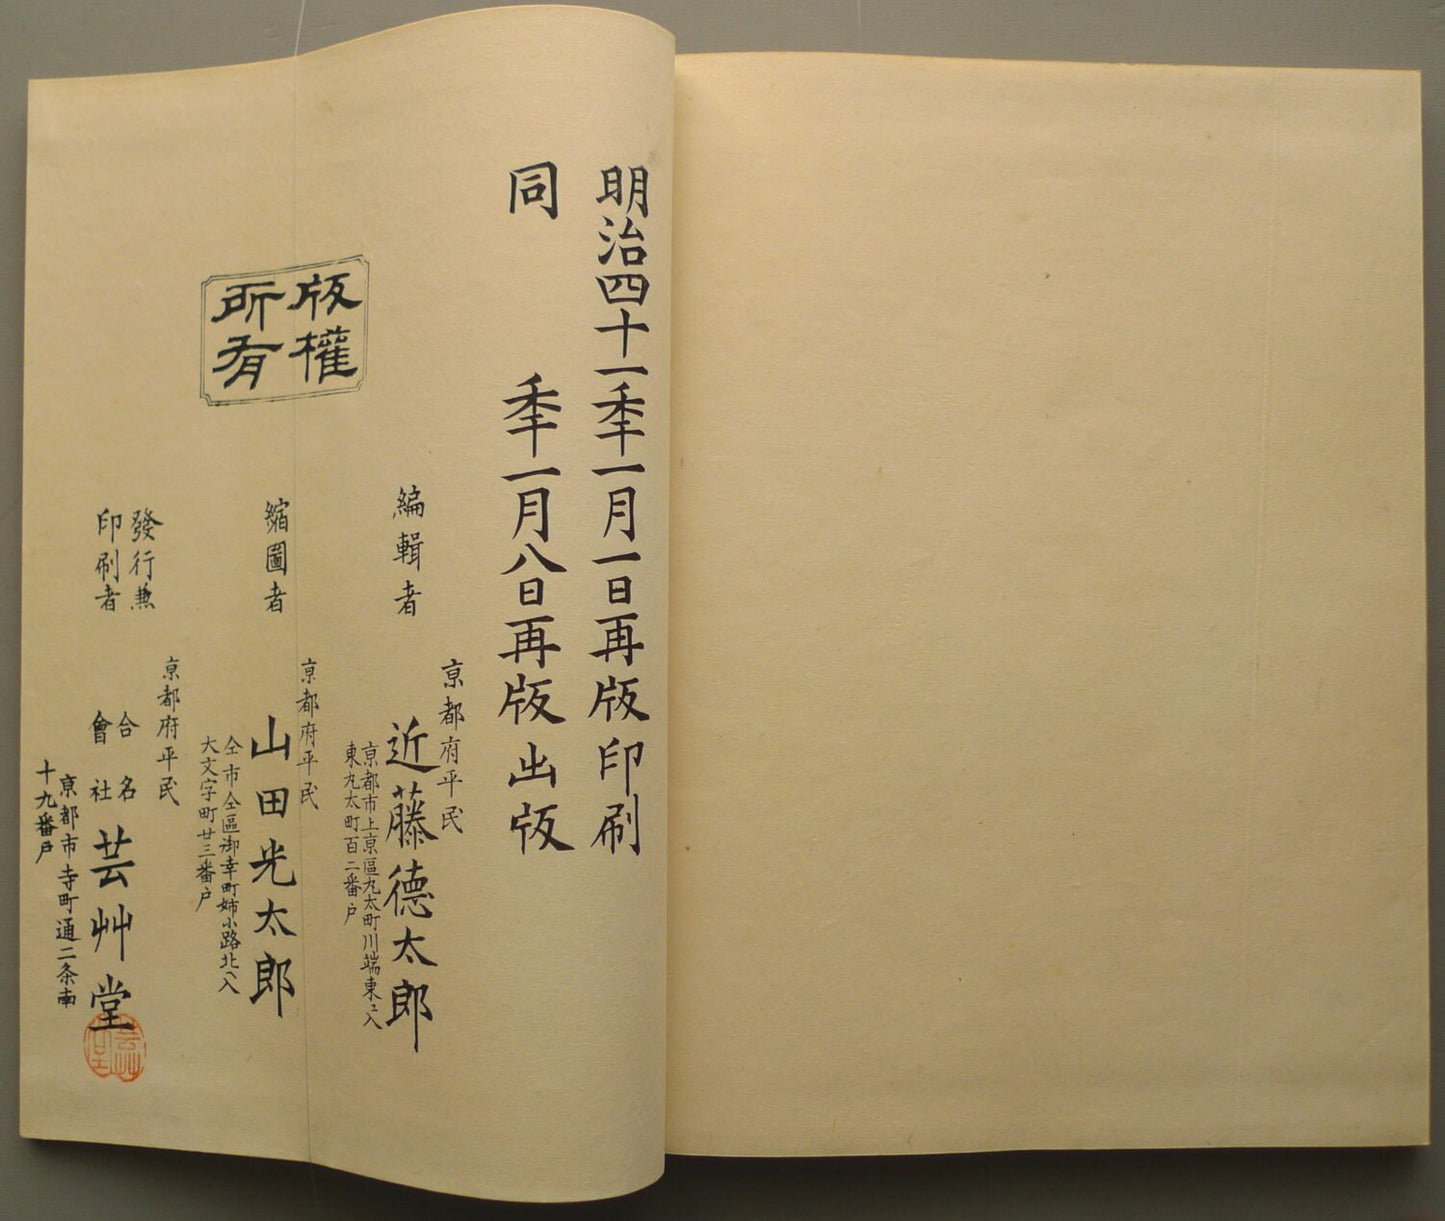 明治四十一秊一月一日再版印刷
同 秊一月八日再版出版
版權
所有
編輯者
京都府平民
近藤德太郎
京都市上京區丸太町川端東ヱ入
東丸太町百二番戶
縮圖者
京都府平民
山田光太郎
仝市仝區御幸町姉小路北ヘ入
大文字町廿三番戶
發行兼
印刷者
京都府平民
合名
會社
芸艸堂
京都市寺町通二条南
十九番戶
芸艸堂